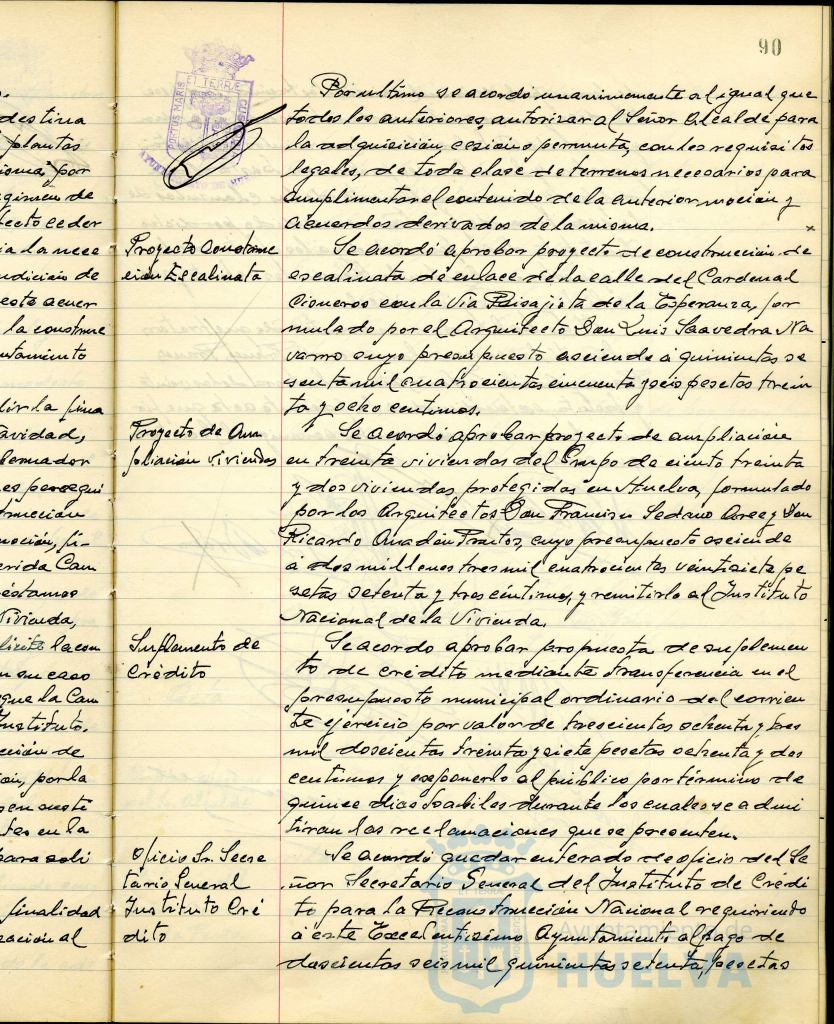 90
Por ultimo se acordó unanimemente al igual que
todos los anteriores, autorizar al Señor Alcalde para
la adquisición, cesión o permuta, con los requisitos
legales, de toda clase de terrenos necesarios para
cumplimentar el contenido de la anterior moción y
acuerdos derivados de la misma.
Proyecto Construc
ción Escalinata
Se acordó aprobar proyecto de construcción de
escalinata de enlace de la calle del Cardenal
Cisneros con la Via Paisajista de la Esperanza, for
mulado por el Arquitecto Don Luis Saavedra Na
varro cuyo presupuesto asciende á quinientas se
senta mil cuatrocientas cincuenta y seis pesetas trein
ta y ocho centimos.
Proyecto de Am
pliación viviendas
Se acordó aprobar proyecto de ampliación
en treinta viviendas del Grupo de ciento treinta
y dos viviendas protegidas en Huelva, formulado
por los Arquitectos Don Francisco Sedano Arce y Don
Ricardo Anadón Frutos, cuyo presupuesto asciende
á dos millones tres mil cuatrocientas veintisiete pe
setas setenta y tres céntimos, y remitirlo al Instituto
Nacional de la Vivienda.
Suplemento de
Crédito
Se acordo aprobar propuesta de suplemen
to de crédito mediante transferencia en el
presupuesto municipal ordinario del corrien
te ejercicio por valor de trescientas ochenta y tres
mil doscientas treinta y siete pesetas ochenta y dos
centimos y exponerlo al publico por término de
quince dias habiles durante los cuales se admi
tiran las reclamaciones que se presenten.
Oficio Sr. Secre
tario General
Instituto Cré
dito
Se acordó quedar enterado de oficio del Se
ñor Secretario General del Instituto de Crédi
to para la Reconstrucción Nacional requiriendo
á este Excelentisimo Ayuntamiento al pago de
doscientas seis mil quinientas setenta, pesetas
destina
plantas
por
regimen de
ceder
ia la nece
ndición de
este acuer
la construc
untamiento
lir la fina
avidad,
bernador
es persegui
trucción
moción, fi-
erida Cam
éstamos
Vivienda,
licite la con
n su caso
que la Cam
Instituto.
cción de
ión, por la
en la
para soli
finalidad
ración al
Ayuntamiento de
HUELVA